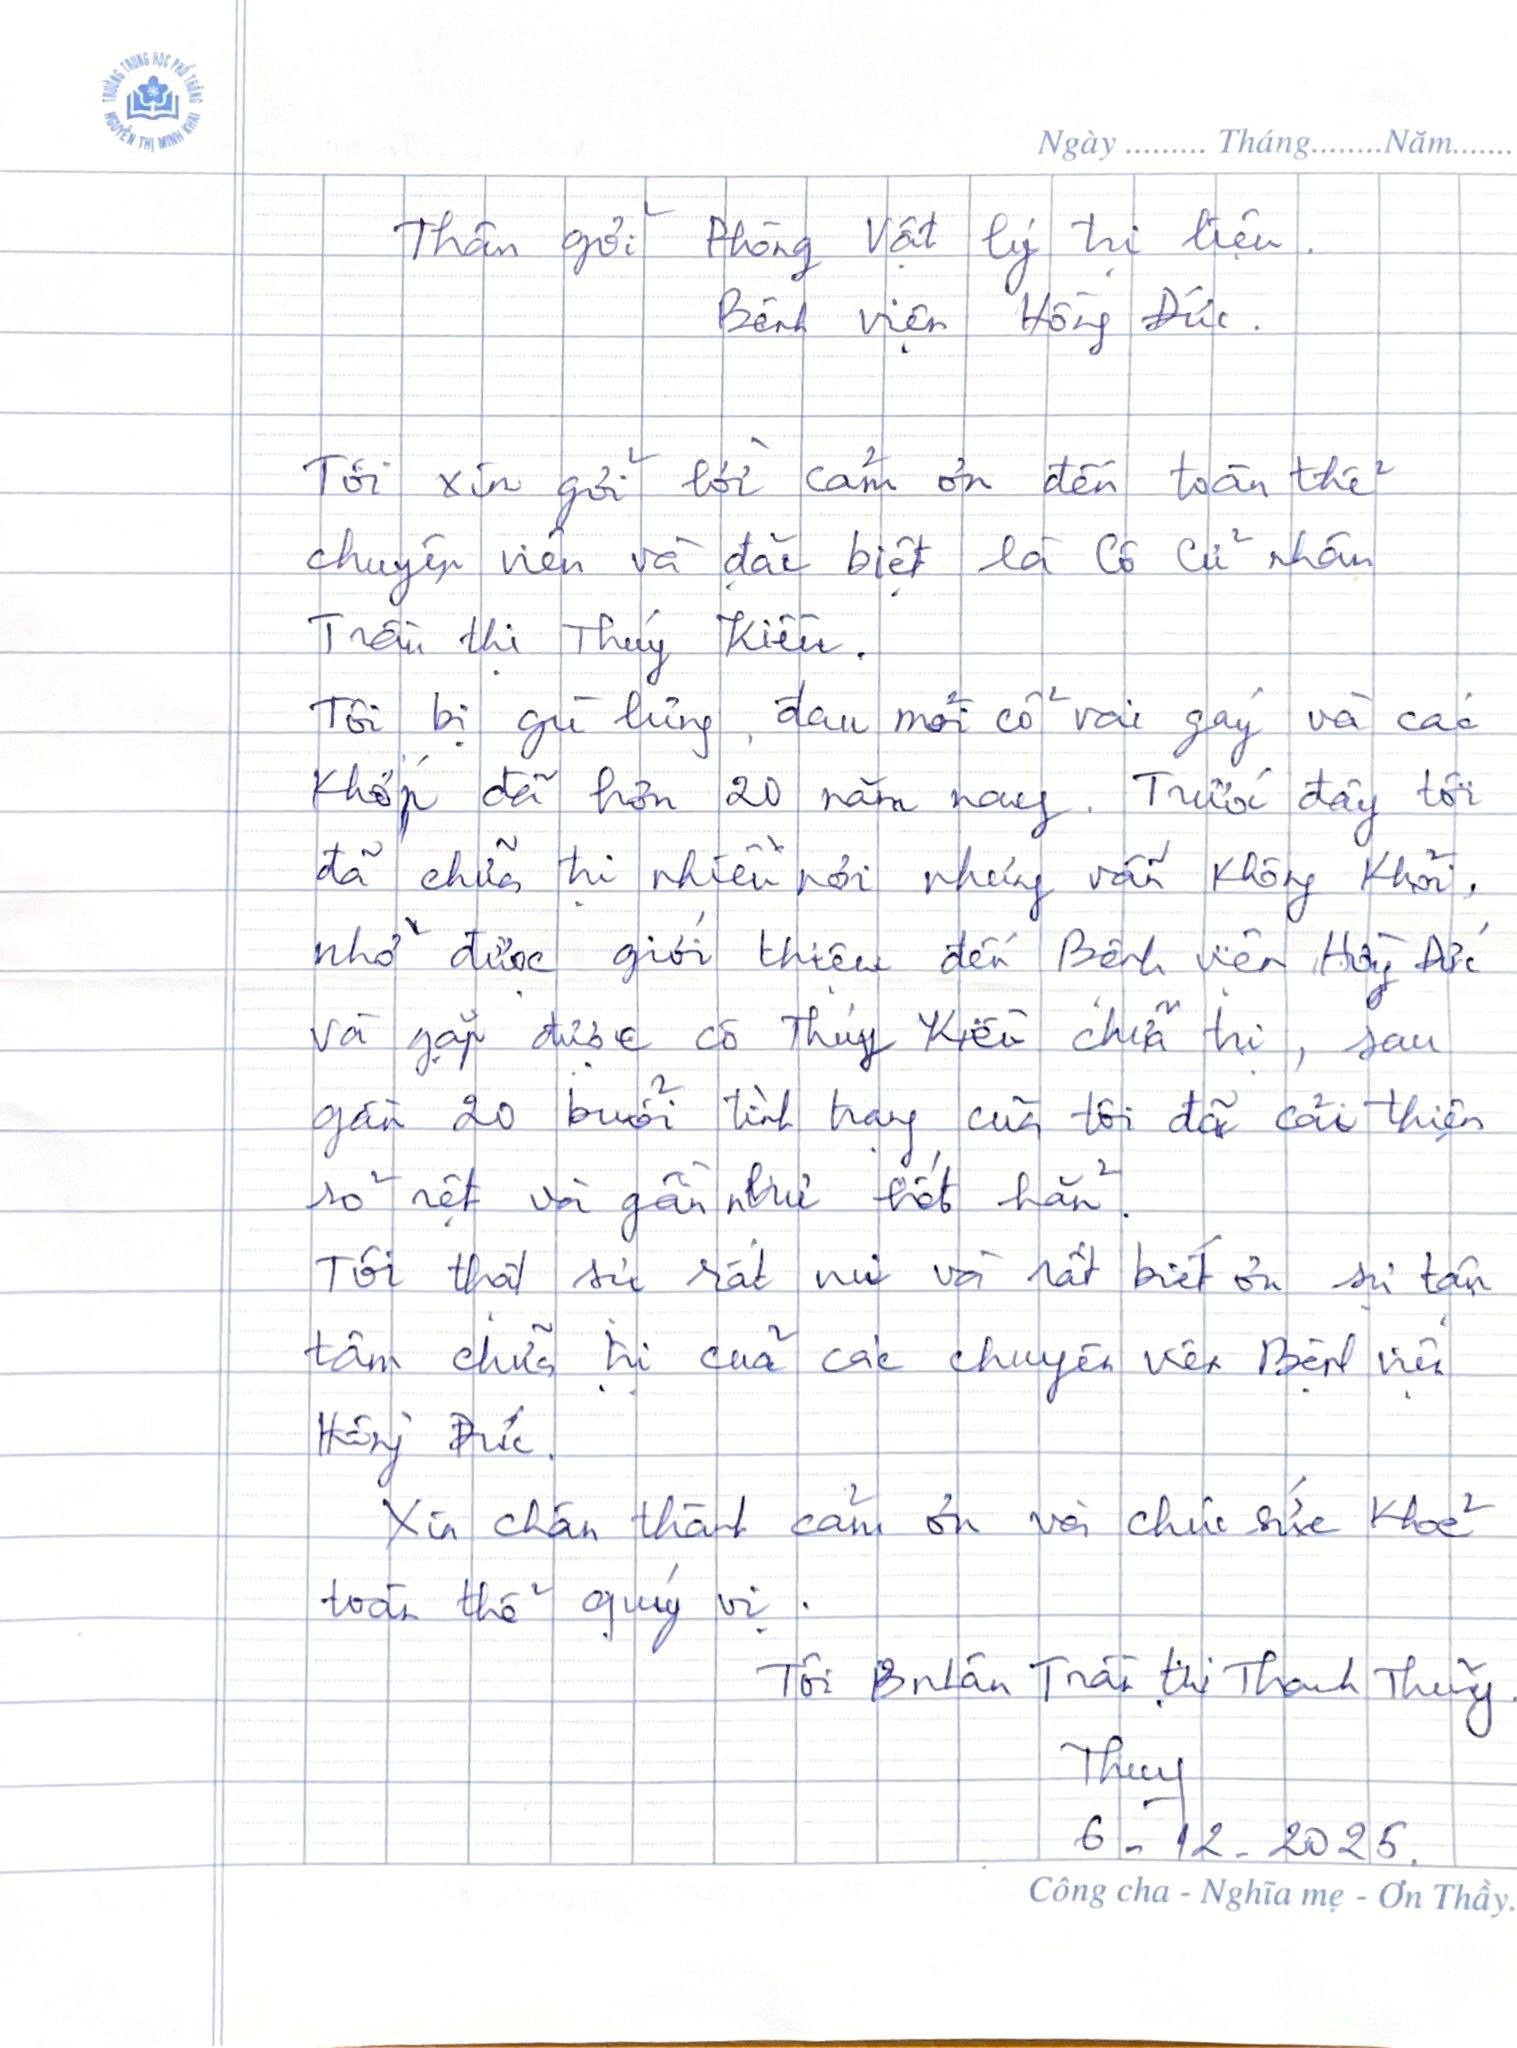 TRƯỜNG TRUNG HỌC PHỔ THÔNG
NGUYỄN THỊ MINH KHAI
Ngày ......... Tháng........Năm.......
Thân gởi Phòng Vật lý trị liệu.
Bệnh viện Hồng Đức.
Tôi xin gởi lời cảm ơn đến toàn thể
chuyên viên và đặc biệt là Cô Cử nhân
Trần thị Thúy Kiều.
Tôi bị gù lưng, đau mỏi cổ vai gáy và các
Khớp đã hơn 20 năm nay. Trước đây tôi
đã chữa trị nhiều nơi nhưng vẫn không khỏi,
nhờ được giới thiệu đến Bệnh viện Hồng Đức
và gặp được cô Thúy Kiều chữa trị, sau
gần 20 buổi tình trạng của tôi đã cải thiện
rõ rệt và gần như hết hẳn.
Tôi thật sự rất vui và rất biết ơn sự tận
tâm chữa trị của các chuyên viên Bệnh viện
Hồng Đức.
Xin chân thành cảm ơn và chúc sức khoẻ
toàn thể quý vị.
Tôi Bnhân Trần thị Thanh Thuỷ.
Thuy
6-12-2025.
Công cha - Nghĩa mẹ - Ơn Thầy.